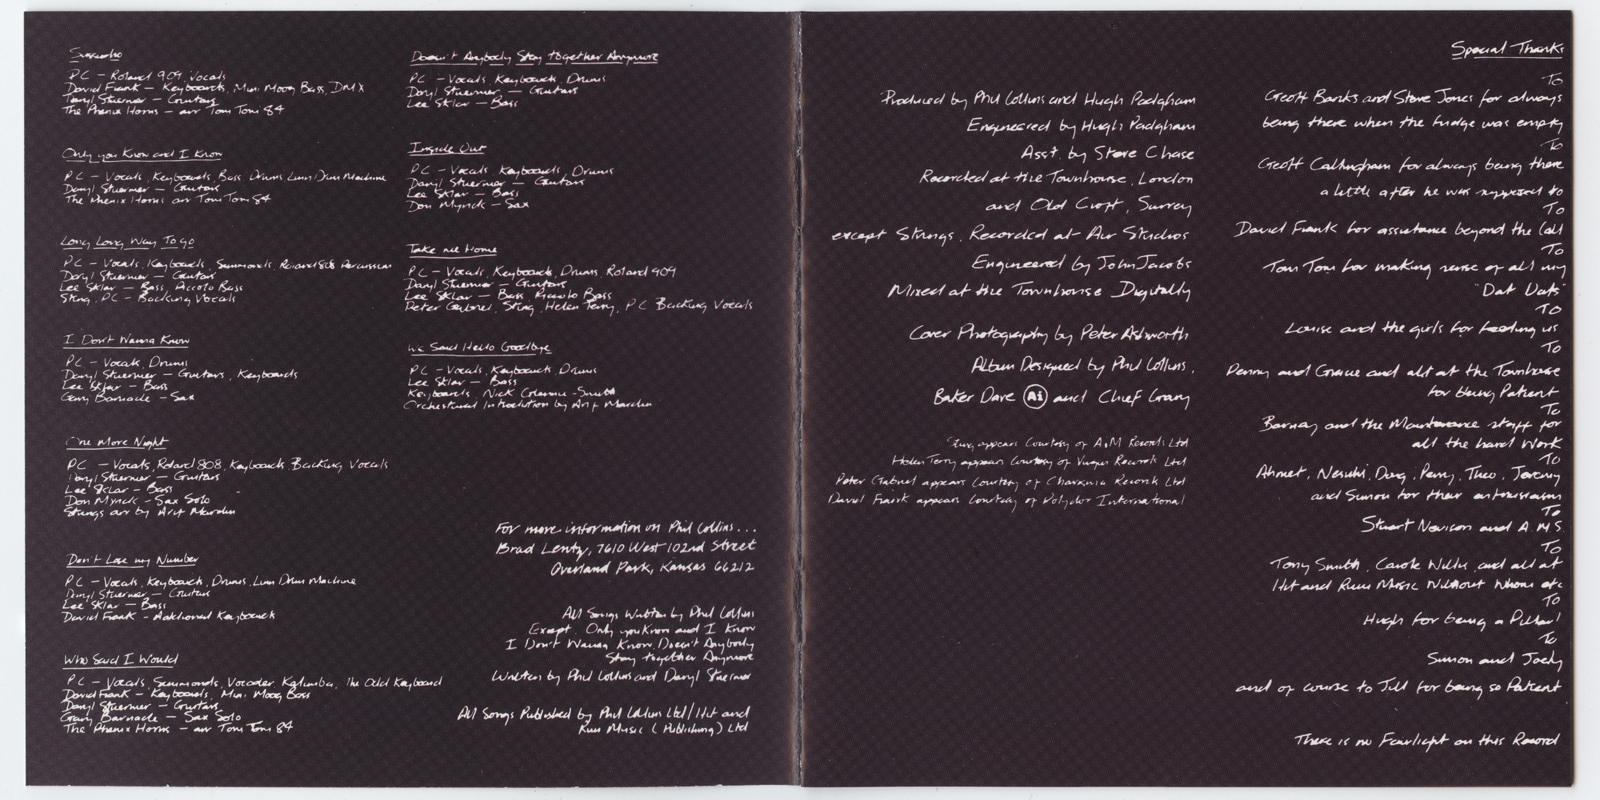 Sussudio
PC - Roland 909, Vocals
David Frank - Keyboards, Mini Moog Bass, DMX
Daryl Stuermer - Guitars
The Phenix Horns - arr Tom Tom 84
Only you Know and I Know
PC - Vocals, Keyboards, Bass Drums Linn Drum Machine
Daryl Stuermer - Guitars
The Phenix Horns arr Tom Tom 84
Long Long Way To go
PC - Vocals, Keyboards, Simmonds, Roland 808 Percussion
Daryl Stuermer - Guitars
Lee Sklar - Bass, Piccolo Bass
Sting, PC - Backing Vocals
I Don't Wanna Know
PC - Vocals, Drums
Daryl Stuermer - Guitars, Keyboards
Lee Sklar - Bass
Gary Barnacle - Sax
One More Night
PC - Vocals, Roland 808, Keyboards, Backing Vocals
Daryl Stuermer - Guitars
Lee Sklar - Bass
Don Myrick - Sax Solo
Strings arr by Arif Mardin
Don't Lose my Number
PC - Vocals, Keyboards, Drums, Linn Drum Machine
Daryl Stuermer - Guitars
Lee Sklar - Bass
David Frank - Additional Keyboards
Who Said I Would
PC - Vocals, Simmonds, Vocoder, Kalimba, The Odd Keyboard
David Frank - Keyboards, Mini Moog Bass
Daryl Stuermer - Guitars
Gary Barnacle - Sax Solo
The Phenix Horns - arr Tom Tom 84
Doesn't Anybody Stay together Anymore
PC - Vocals Keyboards, Drums
Daryl Stuermer - Guitars
Lee Sklar - Bass
Inside Out
PC - Vocals Keyboards, Drums
Daryl Stuermer - Guitars
Lee Sklar - Bass
Don Myrick - Sax
Take me Home
PC - Vocals, Keyboards, Drums, Roland 909
Daryl Stuermer - Guitars
Lee Sklar - Bass Piccolo Bass
Peter Gabriel, Sting, Helen Terry, PC Backing Vocals
We Said Hello Goodbye
PC - Vocals, Keyboards Drums
Lee Sklar - Bass
Keyboards, Nick Glennie-Smith
Orchestral Introduction by Arif Mardin
For more information on Phil Collins...
Brad Lentz, 7610 West 102nd Street
Overland Park, Kansas 66212
All Songs Written by Phil Collins
Except. Only you Know and I Know
I Don't Wanna Know, Doesn't Anybody
Stay together Anymore
Written by Phil Collins and Daryl Stuermer
All Songs Published by Phil Collins Ltd/Hit and
Run Music (Publishing) Ltd
Produced by Phil Collins and Hugh Padgham
Engineered by Hugh Padgham
Asst. by Steve Chase
Recorded at the Townhouse, London
and Old Croft, Surrey
except Strings, Recorded at Air Studios
Engineered by John Jacobs
Mixed at the Townhouse Digitally
Cover Photography by Peter Ashworth
Album Designed by Phil Collins,
Baker Dave Ai and Chief Gray
Sting appears Courtesy of A&M Records Ltd
Helen Terry appears Courtesy of Virgin Records Ltd
Peter Gabriel appears Courtesy of Charisma Records Ltd
David Frank appears Courtesy of Polydor International
Special Thanks
To
Geoff Banks and Steve Jones for always
being there when the fridge was empty
To
Geoff Callingham for always being there
a little after he was supposed to
To
David Frank for assistance beyond the Call
To
Tom Tom for making sense of all my
"Dat Dats"
To
Louise and the girls for feeding us
To
Penny and Gracie and all at the Townhouse
for being Patient
To
Barney and the Maintenance staff for
all the hard Work
To
Ahmet, Nesuhi, Doug, Perry, Theo, Jeremy
and Simon for their enthusiasm
To
Stuart Nevison and A M S
To
Tony Smith, Carole Willis and all at
Hit and Run Music Without Whom etc
To
Hugh for being a Pillar!
To
Simon and Jody
and of course to Jill for being so Patient
There is no Fairlight on this Record